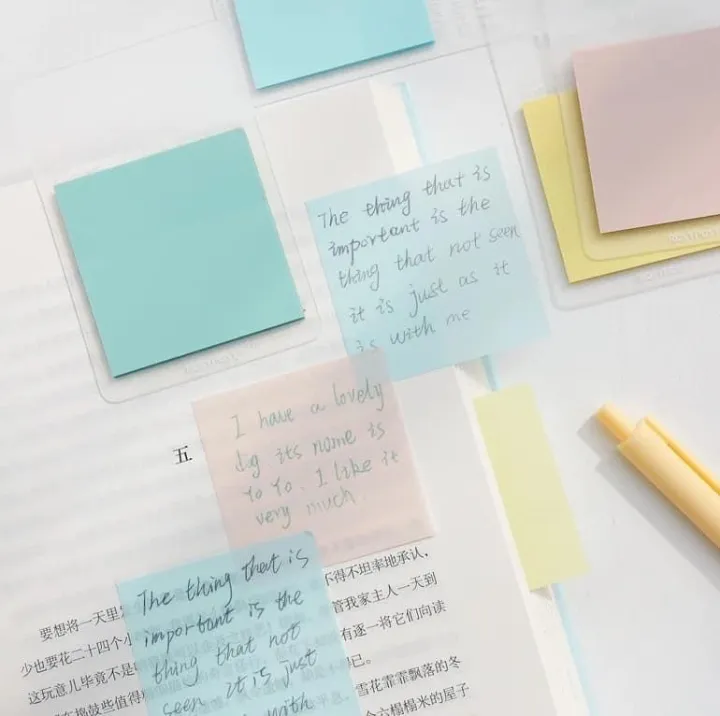 The thing that is
important is the
thing that not seen
it is just as it
is with me
I have a lovely
dog its name is
Yo Yo. I like it
very much.
五
The thing that is
important is the
thing that not
seen it is just
with
要想将一天里
不得不坦率地承认,
少也要花二十四个小
管我家主人一天到
这玩意儿毕竟不是
有逐一将它们向读
鼓些值得
已。
雪花霏霏飘落的冬
六榻榻米的屋子